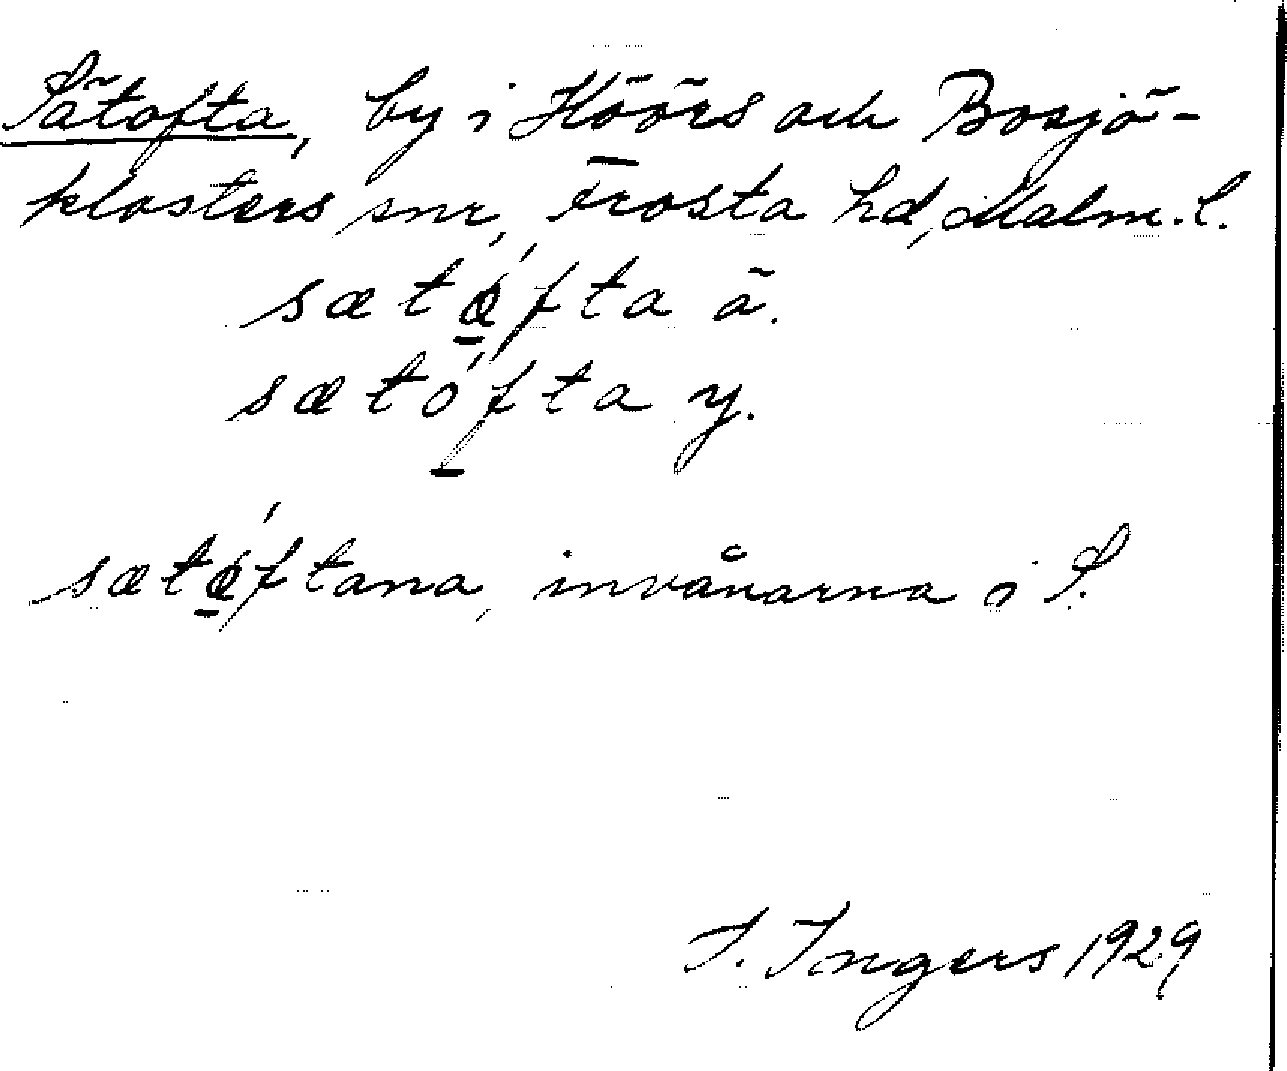 Sätofta, by i Höörs och Bosjö-
klosters snr, Frosta hd, Malm. l.
sætǫ́fta ä.
sætófta y.
sætǫ́ftana, invånarna i S.
I. Ingers 1929